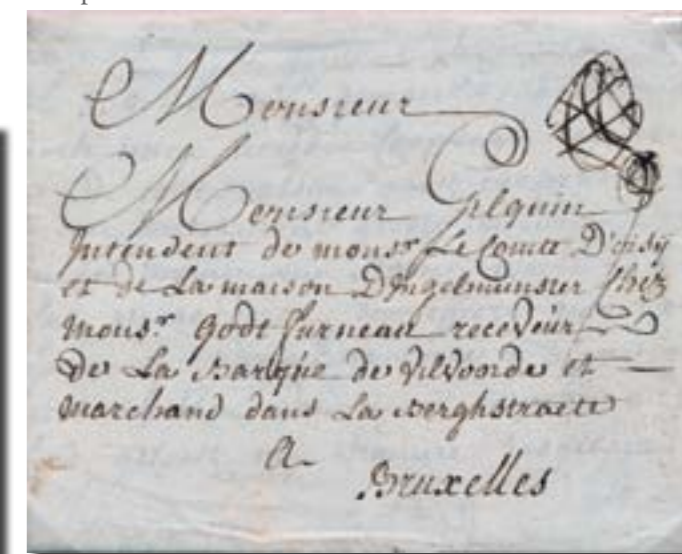 Monsieur
Monsieur Gelquin
Intendent de monsr Le Comte D'oisÿ
et de La maison D'Ingelmunster Chez
monsr godt furneau receveur
De La Barque de vilvorde et
marchand dans La Berghstraete
A
Bruxelles